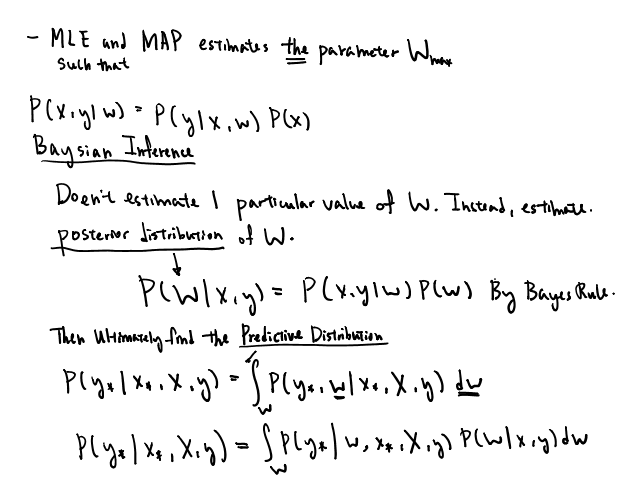 - MLE and MAP estimates the parameter W_max
such that
P(x,y|w) = P(y|x,w) P(x)
Baysian Inference
Doesn't estimate 1 particular value of W. Instead, estimate.
posterior distribution of W.
P(W|x,y) = P(x,y|w) P(w) By Bayes Rule.
Then Ultimately find the Predictive Distribution
P(y_*|x_*, X, y) = ∫_W P(y_*, w|x_*, X, y) dw
P(y_*|x_*, X, y) = ∫_W P(y_*|w, x_*, X, y) P(W|x,y) dw